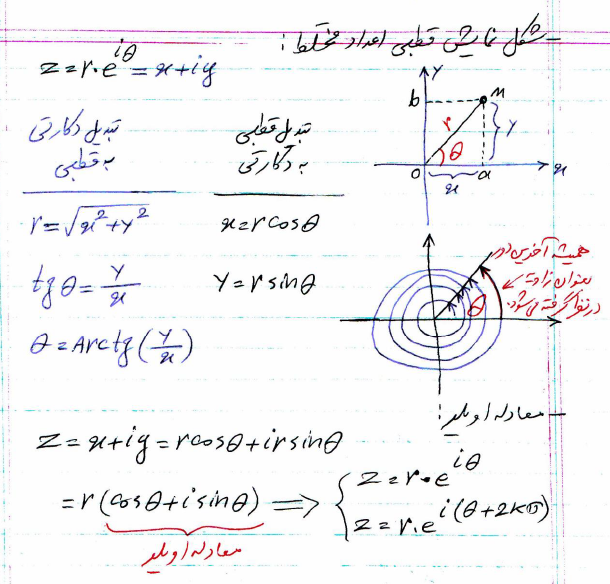 - شکل نمایش قطبی اعداد مختلط :
z = r.e^{iθ} = x + iy
تبدیل دکارتی به قطبی
r = √(x² + y²)
tg θ = y/x
θ = Arctg(y/x)
تبدیل قطبی به دکارتی
x = r cos θ
y = r sin θ
y
b
M
r
θ
y
o
x
a
x
همیشه آخرین دور
بعنوان زاویه
در نظر گرفته می‌شود.
θ
- معادله اویلر :
z = x + iy = r cos θ + i r sin θ
= r (cos θ + i sin θ) ⟹ { z = r.e^{iθ}
z = r.e^{i(θ+2kπ)}
معادله اویلر